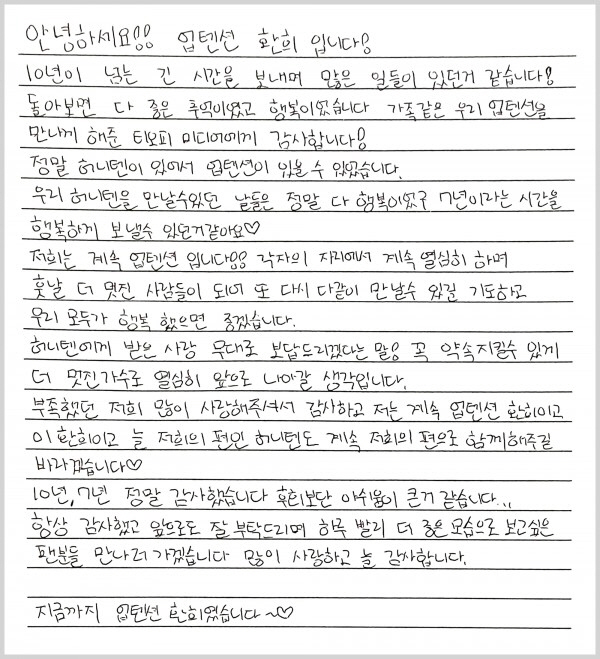 안녕하세요!! 업텐션 환희 입니다!
10년이 넘는 긴 시간을 보내며 많은 일들이 있던거 같습니다!
돌아보면 다 좋은 추억이었고 행복이었습니다 가족같은 우리 업텐션을
만나게 해준 티오피 미디어에게 감사합니다!
정말 허니텐이 있어서 업텐션이 있을 수 있었습니다.
우리 허니텐을 만날수있던 날들은 정말 다 행복이었구 7년이라는 시간을
행복하게 보낼수 있던거같아요♡
저희는 계속 업텐션 입니다!! 각자의 자리에서 계속 열심히 하며
훗날 더 멋진 사람들이 되어 또 다시 다같이 만날수 있길 기도하고
우리 모두가 행복 했으면 좋겠습니다.
허니텐에게 받은 사랑 무대로 보답드리겠다는 말! 꼭 약속지킬수 있게
더 멋진가수로 열심히 앞으로 나아갈 생각입니다.
부족했던 저희 많이 사랑해주셔서 감사하고 저는 계속 업텐션 환희이고
이환희이고 늘 저희의 편인 허니텐도 계속 저희의 편으로 함께해주길
바라겠습니다♡
10년, 7년 정말 감사했습니다 후회보단 아쉬움이 큰거 같습니다...
항상 감사했고 앞으로도 잘 부탁드리며 하루 빨리 더 좋은 모습으로 보고싶은
팬분들 만나러 가겠습니다 많이 사랑하고 늘 감사합니다.
지금까지 업텐션 환희였습니다~♡